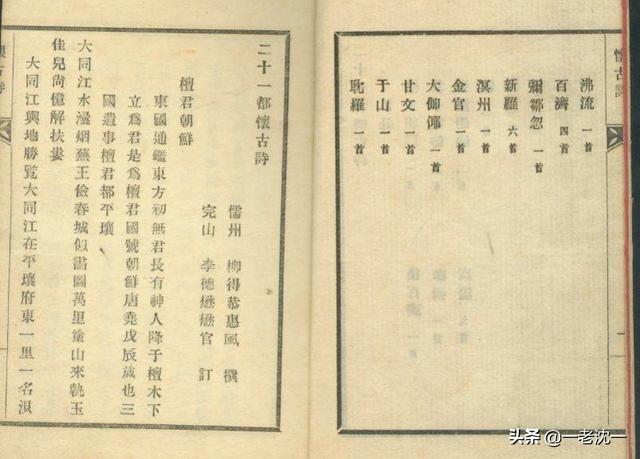 懷古詩
沸流 一首
百濟 四首
彌鄒忽 一首
新羅 六首
溟州 一首
金官 一首
大伽倻 一首
甘文 一首
于山 一首
耽羅 一首
二十一都懷古詩
儒州 柳得恭惠風 撰
完山 李德懋懋官 訂
檀君朝鮮
東國通鑑東方初無君長有神人降于檀木下
立爲君是爲檀君國號朝鮮唐堯戊辰歲也三
國遺事檀君都平壤
大同江水浸烟蕪王儉春城似畵圖萬里塗山來執玉
佳兒尙憶解扶婁
大同江輿地勝覽大同江在平壤府東一里一名浿
懷古詩
头条 @一老沈一